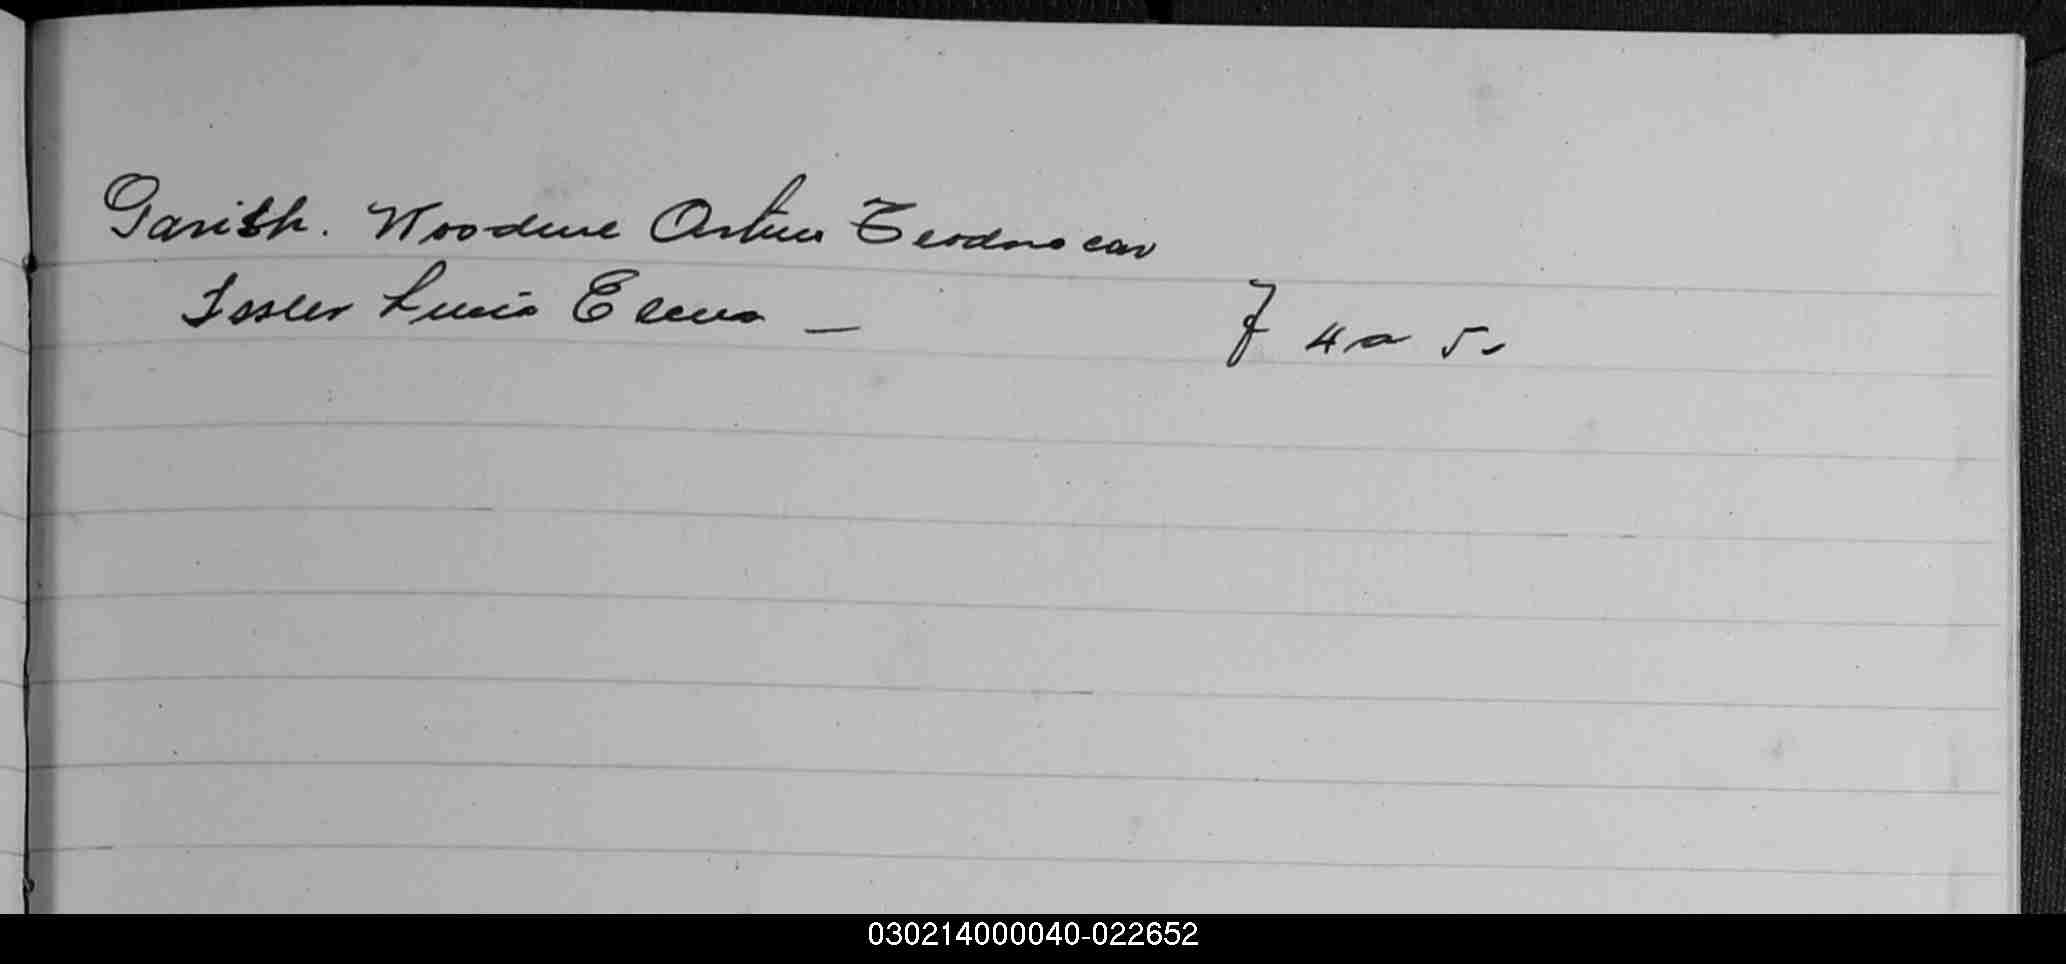 Garish. Woodine Arturo Teodoro con
Issler Lucia Elena —
F 4 a 5.
030214000040-022652